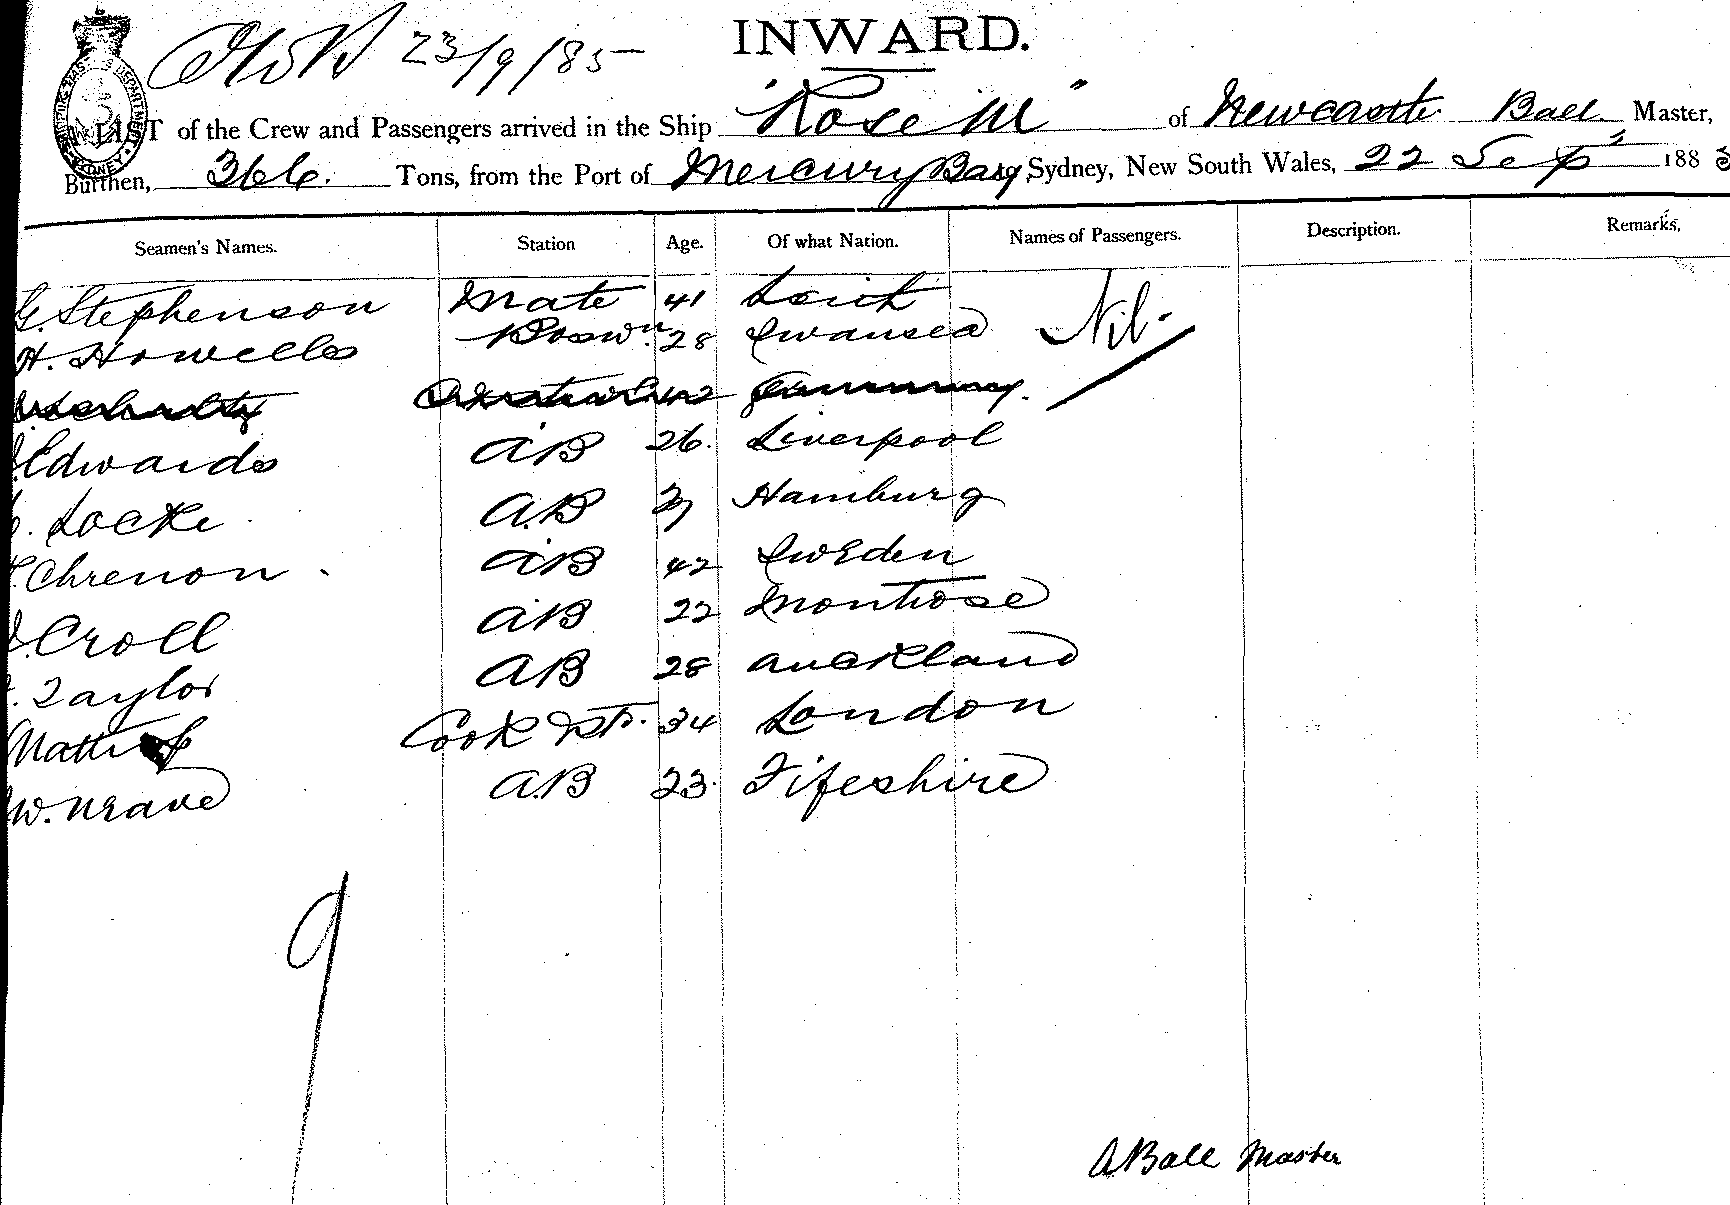 23/9/85 INWARD.
A LIST of the Crew and Passengers arrived in the Ship "Rose M" of Newcastle Ball Master,
Burthen, 366. Tons, from the Port of Mercury Bay Sydney, New South Wales, 22 Sep 1885
Seamen's Names. Station Age. Of what Nation. Names of Passengers. Description. Remarks.
G. Stephenson Mate 41 Leith Nil.
H. Howells Boswn. 28 Swansea
Schultz 42 Germany
J. Edwards AB 26. Liverpool
Locke A.B Hamburg
Chrenon AB 42 Sweden
J. Croll AB 22 Montrose
Taylor AB 28 Auckland
Cook & St. 34 London
W. Nrave A.B 23. Fifeshire
9
A Ball Master